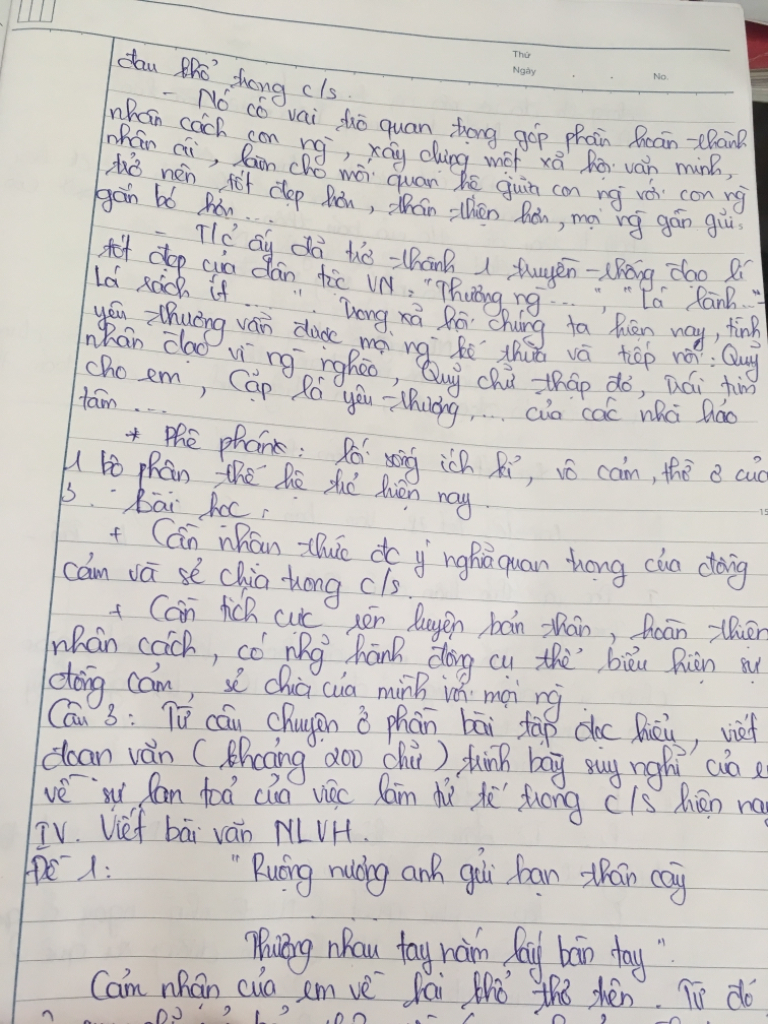 Thứ
Ngày . . No.
đau khổ trong c/s.
- Nó có vai trò quan trọng góp phần hoàn thành
nhân cách con ng, xây dựng một xã hội văn minh,
nhân ái, làm cho mối quan hệ giữa con ng với con ng
trở nên tốt đẹp hơn, thân thiện hơn, mọi ng gần gũi,
gắn bó hơn...
- T/c ấy đã trở thành 1 truyền thống đạo lí
tốt đẹp của dân tộc VN: "Thương ng...", "Lá lành..."
Lá rách ít ...". Trong xã hội chúng ta hiện nay, tình
yêu thương vẫn được mọi ng kế thừa và tiếp nối: Quỹ
nhân đạo vì ng nghèo, Quỹ chữ thập đỏ, Trái tim
cho em, Cặp lá yêu thương,... của các nhà hảo
tâm...
* Phê phán: lối sống ích kỉ, vô cảm, thờ ơ của
1 bộ phận thế hệ trẻ hiện nay.
3. Bài học:
15
+ Cần nhận thức đc ý nghĩa quan trọng của đồng
cảm và sẻ chia trong c/s.
+ Cần tích cực rèn luyện bản thân, hoàn thiện
nhân cách, có nhg hành động cụ thể biểu hiện sự
đồng cảm, sẻ chia của mình với mọi ng
Câu 3: Từ câu chuyện ở phần bài tập đọc hiểu, viết
đoạn văn (khoảng 200 chữ) trình bày suy nghĩ của e
về sự lan toả của việc làm tử tế trong c/s hiện nay
IV. Viết bài văn NLVH.
Đề 1: "Ruộng nương anh gửi bạn thân cày
Thương nhau tay nắm lấy bàn tay".
Cảm nhận của em về hai khổ thơ trên. Từ đó